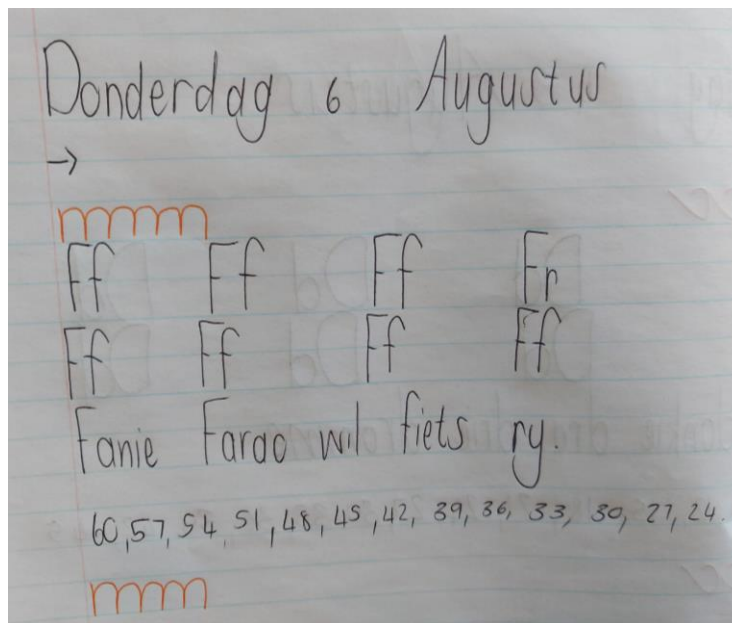 Donderdag 6 Augustus
→
Ff Ff Ff Fr
Ff Ff Ff Ff
Fanie Farao wil fiets ry.
60, 57, 54, 51, 48, 45, 42, 39, 36, 33, 30, 27, 24.